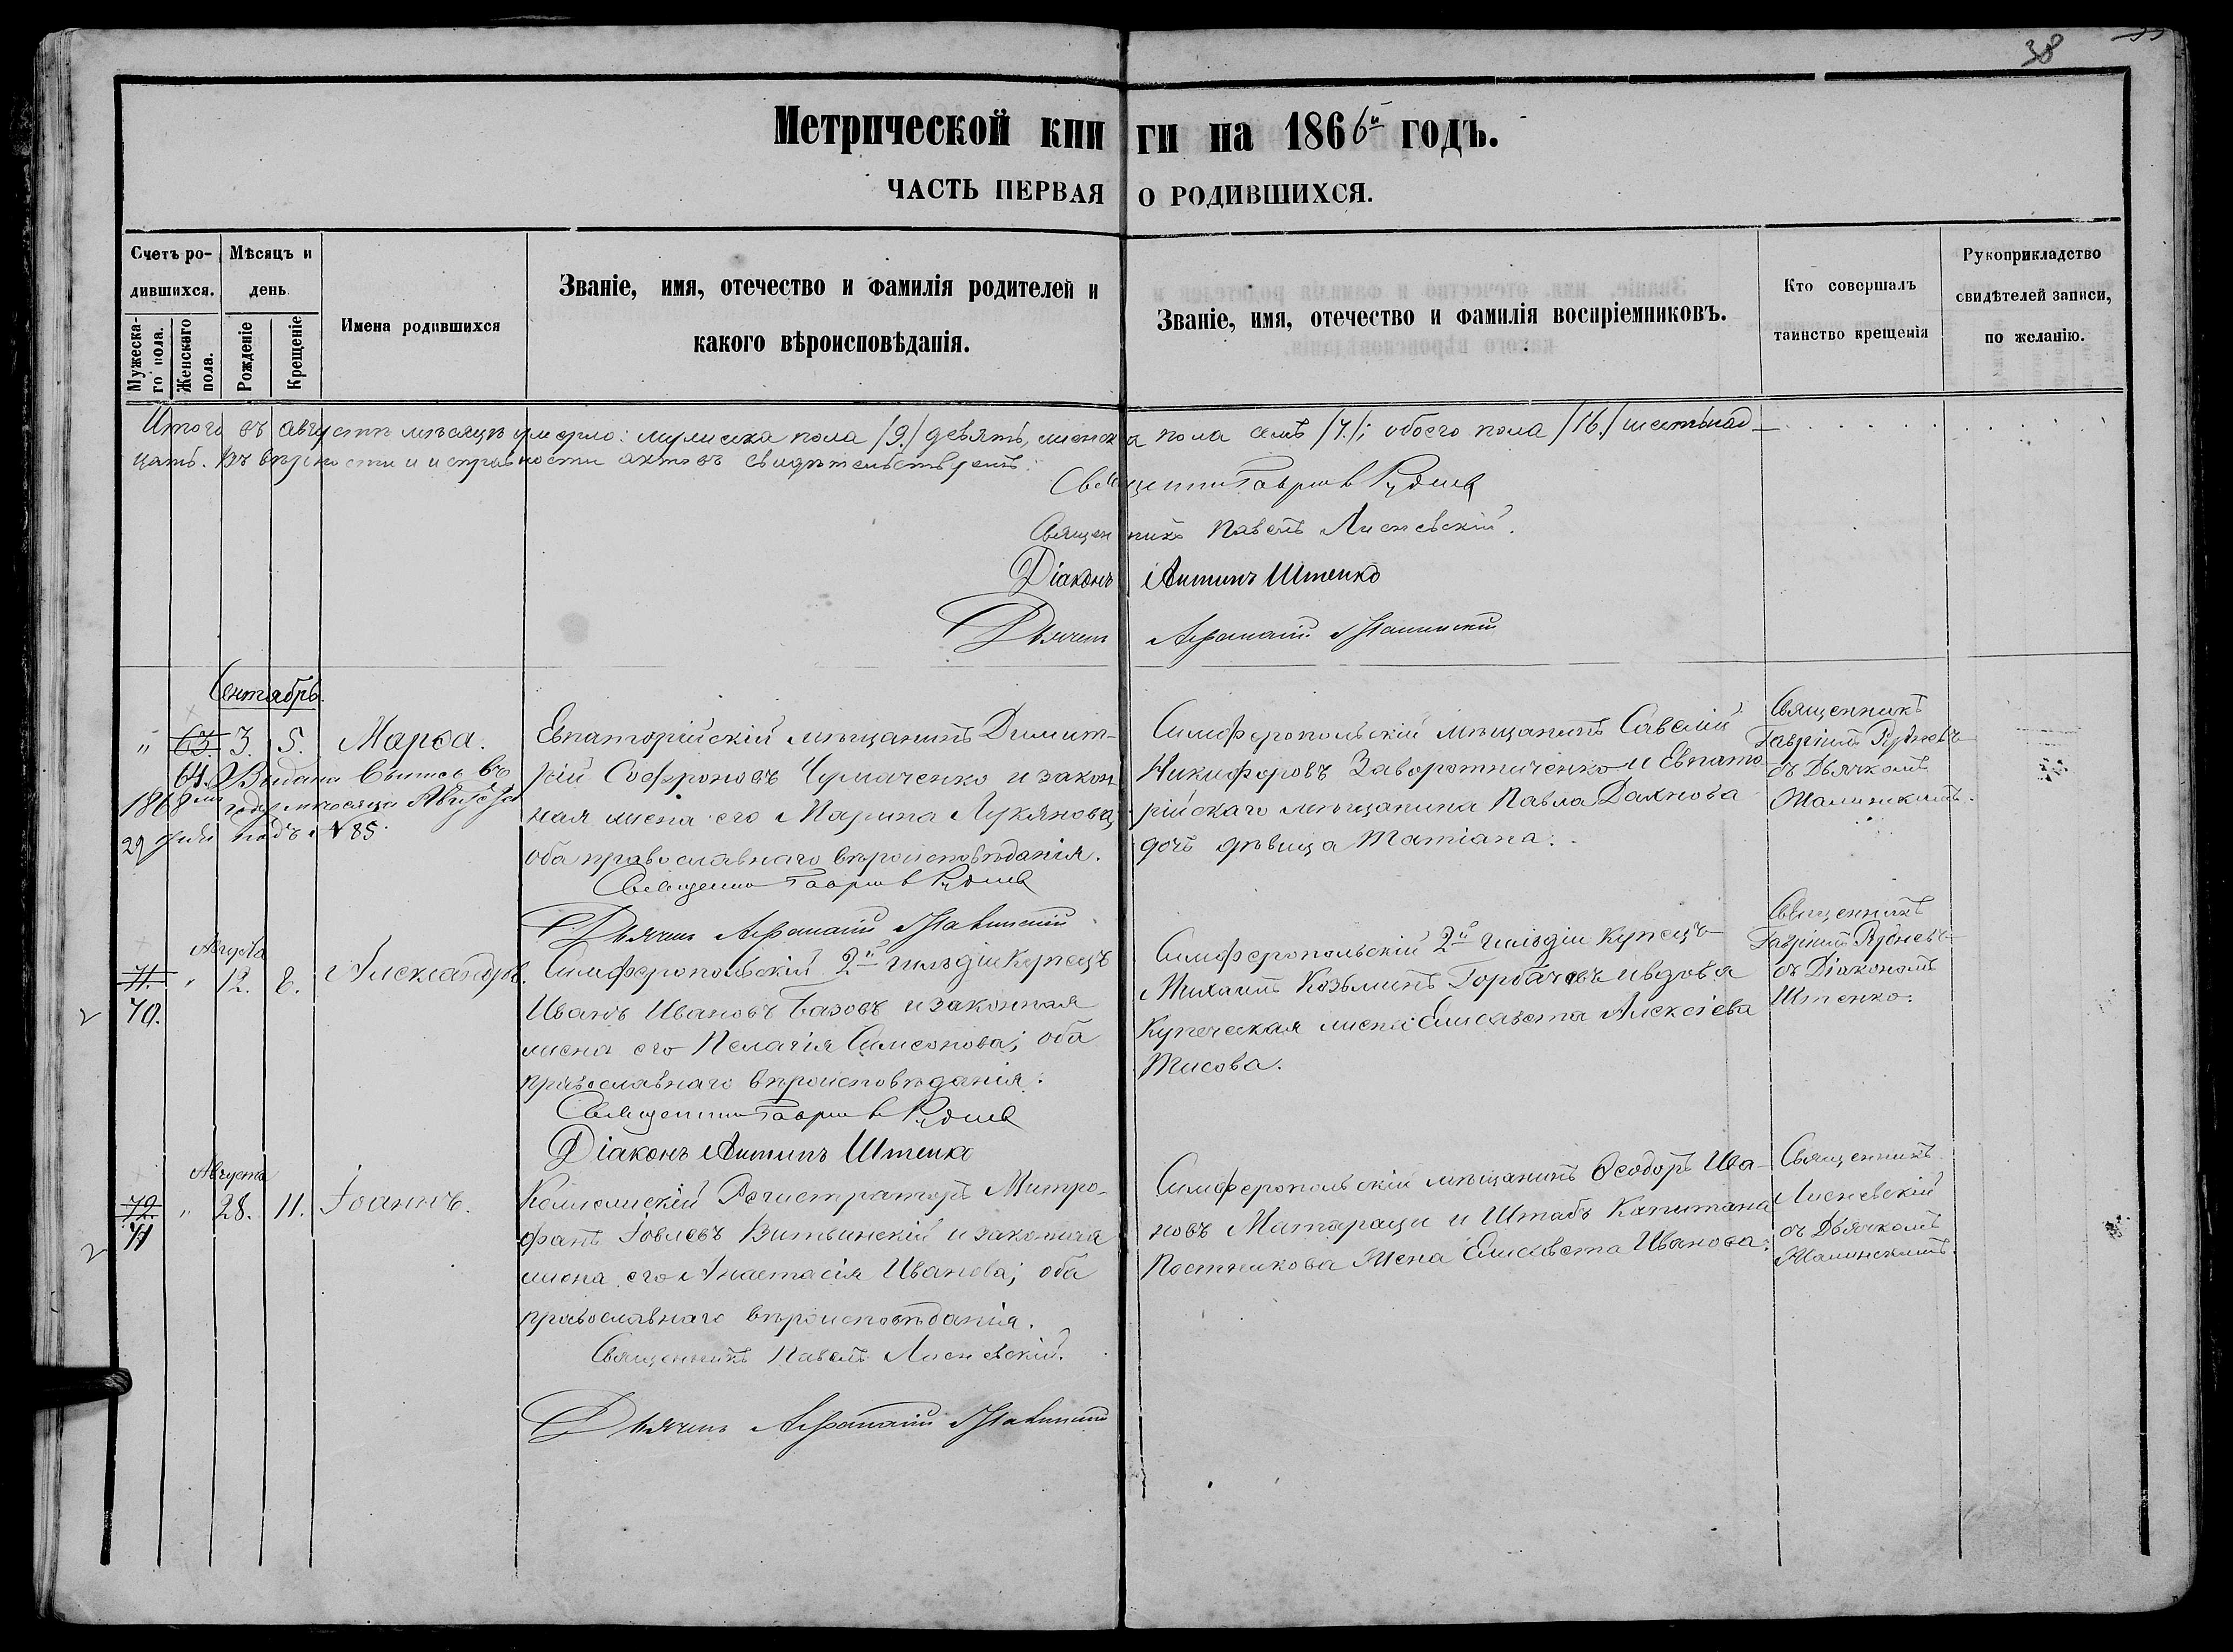 38
Метрической кни ги на 1866й годъ.
ЧАСТЬ ПЕРВАЯ О РОДИВШИХСЯ.
Счетъ ро-
дившихся.
Мужеска-
го пола.
Женскаго
пола.
Мѣсяцъ и
день
Рожденіе
Крещеніе
Имена родившихся
Званіе, имя, отечество и фамилія родителей и
какого вѣроисповѣданія.
Званіе, имя, отечество и фамилія воспріемниковъ.
Кто совершалъ
таинство крещенія
Рукоприкладство
свидѣтелей записи,
по желанію.
Итого въ августѣ мѣсяцѣ умерло: мужеска пола /9./ девять, женска пола семь /7./; обоего пола /16./ шестьнад-
цать. Въ вѣрности и исправности актовъ свидѣтельствуемъ:
Священник Гавриил Руднев
Священникъ Павелъ Лисневскій.
Діаконъ Антипъ Штепко
Дьячекъ Афанасій
Сентябрь.
" 63 3. 5. Марѳа.
64. Выдана Свитс. въ
1868мъ году мѣсяца Августа
29 дня подъ № 85.
Евпаторійскій мѣщанинъ Димит-
рій Софроновъ Чумаченко и закон-
ная жена его Марина Лукянова,
оба православнаго вѣроисповѣданія.
Священник Гавриил Руднев
Дьячекъ Афанасій
Симферопольскій мѣщанинъ Савелій
Никифоровъ Заворотниченко и Евпато-
рійскаго мѣщанина Павла Дахнова
дочь дѣвица Татіана.
Священникъ
Гавріилъ Рудневъ
съ Дьячкомъ
Августа
71. " 12. 8. Александръ.
70.
Симферопольскій 2й гильдіи Купецъ
Иванъ Ивановъ Базовъ и законная
жена его Пелагія Симеонова; оба
православнаго вѣроисповѣданія.
Священник Гавриил Руднев
Діаконъ Антипъ Штепко
Симферопольскій 2й гильдіи Купецъ
Михаилъ Козьминъ Горбачевъ и вдова
Купеческая жена Елисавета Алексіева
Тисова.
Священникъ
Гавріилъ Рудневъ
съ Діакономъ
Штепко.
Августа
72. " 28. 11. Іоаннъ.
71
Коллежскій Регистраторъ Митро-
фанъ Іовлевъ Витвинскій и законная
жена его Анастасія Иванова; оба
православнаго вѣроисповѣданія.
Священникъ Павелъ Лисневскій.
Дьячекъ Афанасій
Симферопольскій мѣщанинъ Ѳеодоръ Ива-
новъ Матараци и Штабъ Капитана
Постникова Жена Елисавета Иванова.
Священникъ
Лисневскій
съ Дьячкомъ